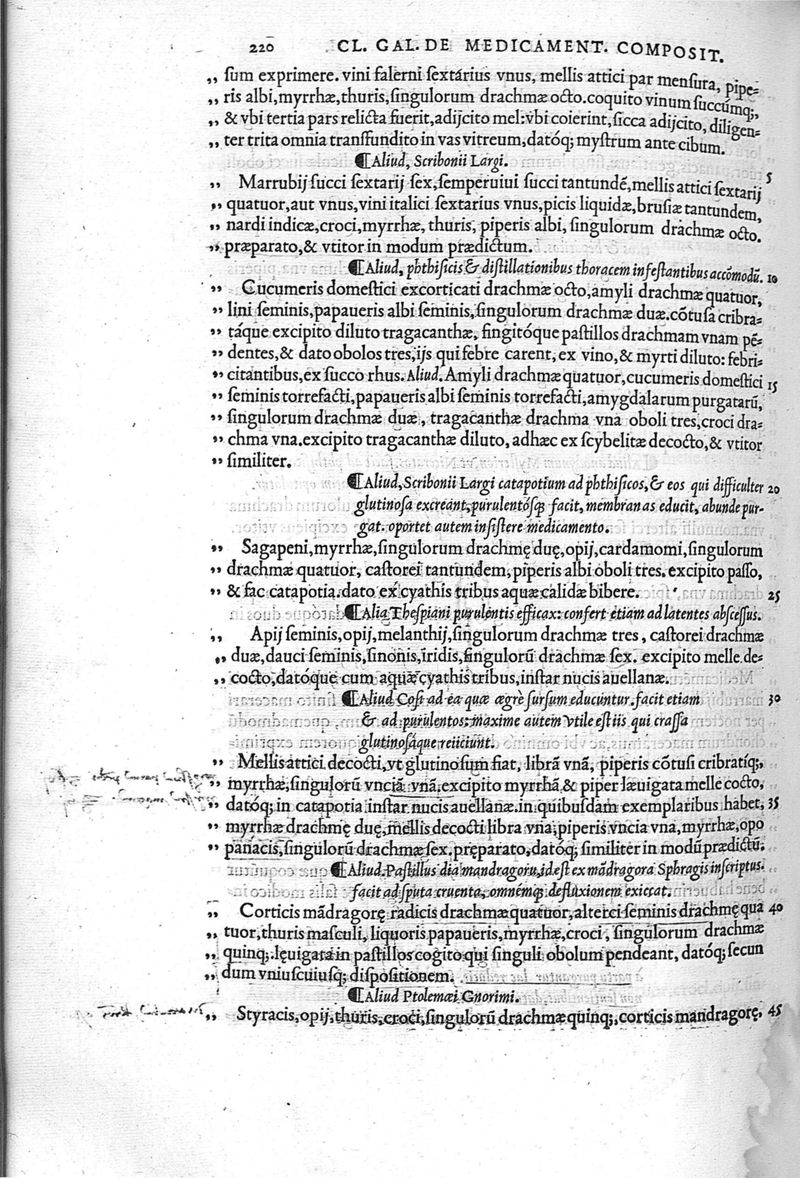 220 CL. GAL. DE MEDICAMENT. COMPOSIT.
„ ſum exprimere. vini falerni ſextarius vnus, mellis attici par menſura, pipe=
„ ris albi, myrrhæ, thuris, ſingulorum drachmæ octo. coquito vinum ſuccumq́;,
„ & vbi tertia pars relicta fuerit, adijcito mel: vbi coierint, ſicca adijcito, diligen=
„ ter trita omnia transfundito in vas vitreum, datóq; myſtrum ante cibum.
¶Aliud, Scribonii Largi. 5
„ Marrubij ſucci ſextarij ſex, ſemperuiui ſucci tantundẽ, mellis attici ſextarij
„ quatuor, aut vnus, vini italici ſextarius vnus, picis liquidæ, brutiæ tantundem,
„ nardi indicæ, croci, myrrhæ, thuris, piperis albi, ſingulorum drachmæ octo.
„ præparato, & vtitor in modum prædictum.
¶Aliud, phthiſicis & diſtillationibus thoracem infeſtantibus accõmodũ. 10
„ Cucumeris domeſtici excorticati drachmæ octo, amyli drachmæ quatuor,
„ lini ſeminis, papaueris albi ſeminis, ſingulorum drachmæ duæ. cõtuſa cribra=
„ táque excipito diluto tragacanthæ, fingitóque paſtillos drachmam vnam pẽ=
„ dentes, & dato obolos tres, ijs qui febre carent, ex vino, & myrti diluto: febri=
„ citantibus, ex ſucco rhus. Aliud. Amyli drachmæ quatuor, cucumeris domeſtici 15
„ ſeminis torrefacti, papaueris albi ſeminis torrefacti, amygdalarum purgatarũ,
„ ſingulorum drachmæ duæ, tragacanthæ drachma vna oboli tres, croci dra=
„ chma vna. excipito tragacanthæ diluto, adhæc ex ſcybelitæ decocto, & vtitor
„ ſimiliter.
¶Aliud, Scribonii Largi catapotium ad phthiſicos, & eos qui difficulter 20
glutinoſa excreant, purulentósq; facit, membranas educit, abunde pur-
gat. oportet autem inſiſtere medicamento.
„ Sagapeni, myrrhæ, ſingulorum drachmę duę, opij, cardamomi, ſingulorum
„ drachmæ quatuor, caſtorei tantundem, piperis albi oboli tres. excipito paſſo,
„ & fac catapotia. dato ex cyathis tribus aquæ calidæ bibere. 25
¶Alia Theſpiani purulentis efficax: confert etiam ad latentes abſceſſus.
„ Apij ſeminis, opij, melanthij, ſingulorum drachmæ tres, caſtorei drachmæ
„ duæ, dauci ſeminis, ſinonis, iridis, ſingulorũ drachmæ ſex. excipito melle de=
„ cocto, datóque cum aquæ cyathis tribus, inſtar nucis auellanæ.
¶Aliud Coſi ad ea quæ ægrè ſurſum educuntur. facit etiam 30
& ad purulentos: maxime autem vtile eſt iis qui craſſa
glutinoſáque reiiciunt.
„ Mellis attici decocti, vt glutinoſum fiat, librã vnã, piperis cõtuſi cribratiq́;,
„ myrrhæ, ſingulorũ vnciã vnã, excipito myrrhã, & piper læuigata melle cocto,
„ datóq; in catapotia inſtar nucis auellanæ. in quibuſdam exemplaribus habet, 35
„ myrrhæ drachmę duę, mellis decocti libra vna, piperis vncia vna, myrrhæ, opo
„ panácis, ſingulorũ drachmæ ſex. pręparato, datóq; ſimiliter in modũ prædictũ.
¶Aliud. Paſtillus dia mandragoru, id eſt ex mãdragora Sphragis inſcriptus.
facit ad ſputa cruenta, omnémq; defluxionem exiccat.
„ Corticis mãdragorę radicis drachmæ quatuor, alterci ſeminis drachmę qua 40
„ tuor, thuris maſculi, liquoris papaueris, myrrhæ, croci, ſingulorum drachmæ
„ quinq;. lęuigata in paſtillos cogito qui ſinguli obolum pendeant, datóq; ſecun
„ dum vniuſcuiuſq; diſpoſitionem.
¶Aliud Ptolemæi Gnorimi.
„ Styracis, opij, thuris, croci, ſingulorũ drachmæ quinq;, corticis mandragorę, 45